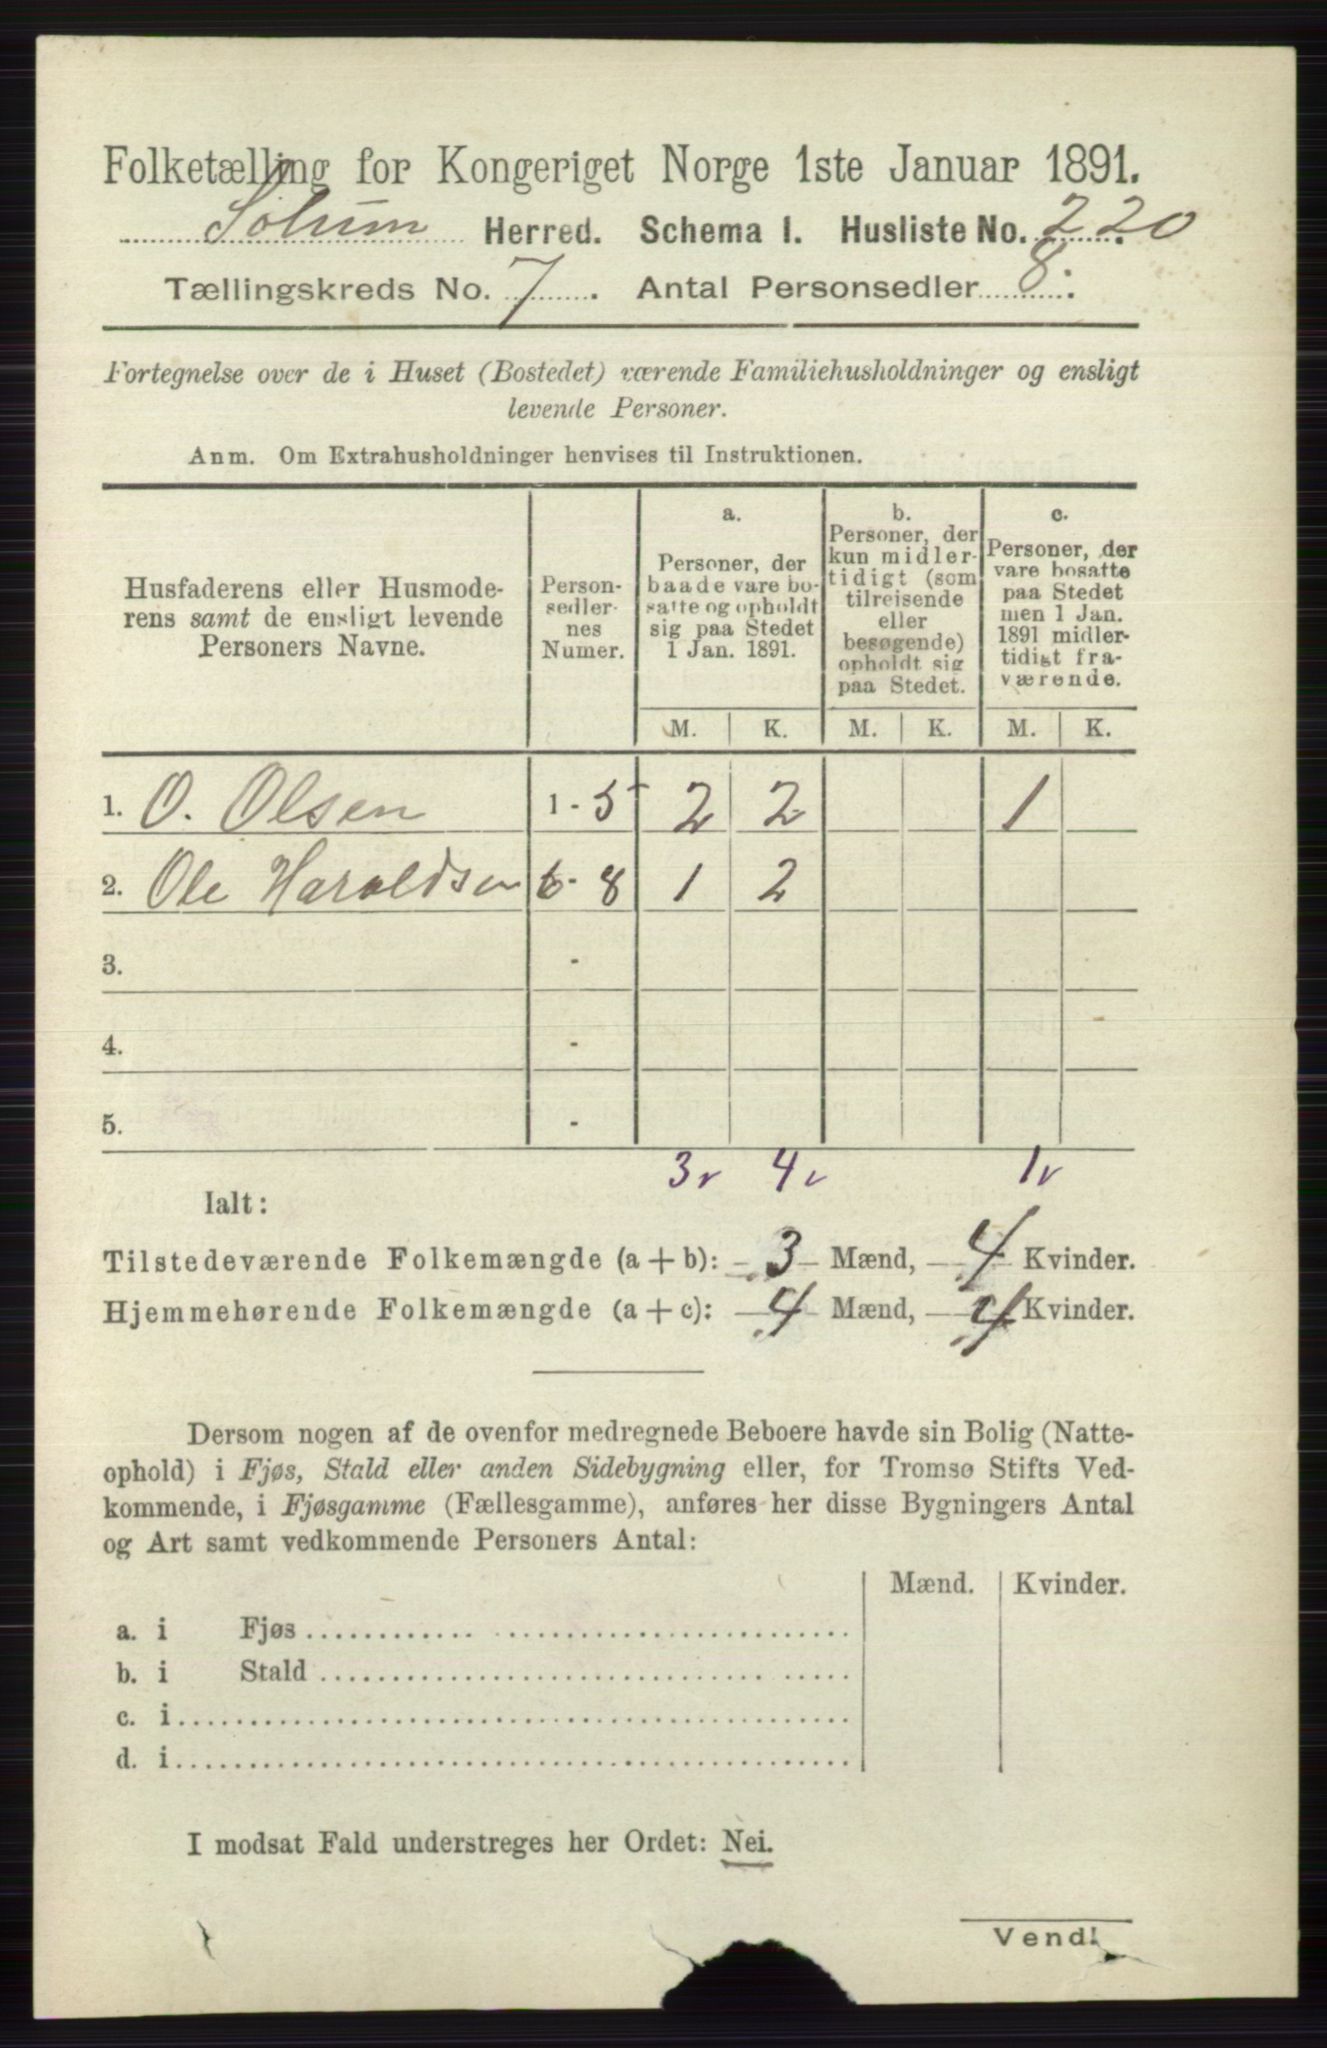 Folketælling for Kongeriget Norge 1ste Januar 1891.
Solum Herred. Schema I. Husliste No. 220.
Tællingskreds No. 7. Antal Personsedler 8.
Fortegnelse over de i Huset (Bostedet) værende Familiehusholdninger og ensligt
levende Personer.
Anm. Om Extrahusholdninger henvises til Instruktionen.
Husfaderens eller Husmode-
rens samt de ensligt levende
Personers Navne.
Person-
sedler-
nes
Numer.
a.
Personer, der
baade vare bo-
satte og opholdt
sig paa Stedet
1 Jan. 1891.
b.
Personer, der
kun midler-
tidigt (som
tilreisende
eller
besøgende)
opholdt sig
paa Stedet.
c.
Personer, der
vare bosatte
paa Stedet
men 1 Jan.
1891 midler-
tidigt fra-
værende.
M. K. M. K. M. K.
1. O. Olsen 1 - 5 2 2 1
2. Ole Haroldsen 6 - 8 1 2
3. -
4. -
5. -
3 v 4 v 1 v
Ialt:
Tilstedeværende Folkemængde (a + b): 3 Mænd, 4 Kvinder.
Hjemmehørende Folkemængde (a + c): 4 Mænd, 4 Kvinder.
Dersom nogen af de ovenfor medregnede Beboere havde sin Bolig (Natte-
ophold) i Fjøs, Stald eller anden Sidebygning eller, for Tromsø Stifts Ved-
kommende, i Fjøsgamme (Fællesgamme), anføres her disse Bygningers Antal
og Art samt vedkommende Personers Antal:
Mænd. Kvinder.
a. i Fjøs
b. i Stald
c. i
d. i
I modsat Fald understreges her Ordet: Nei.
Vend!